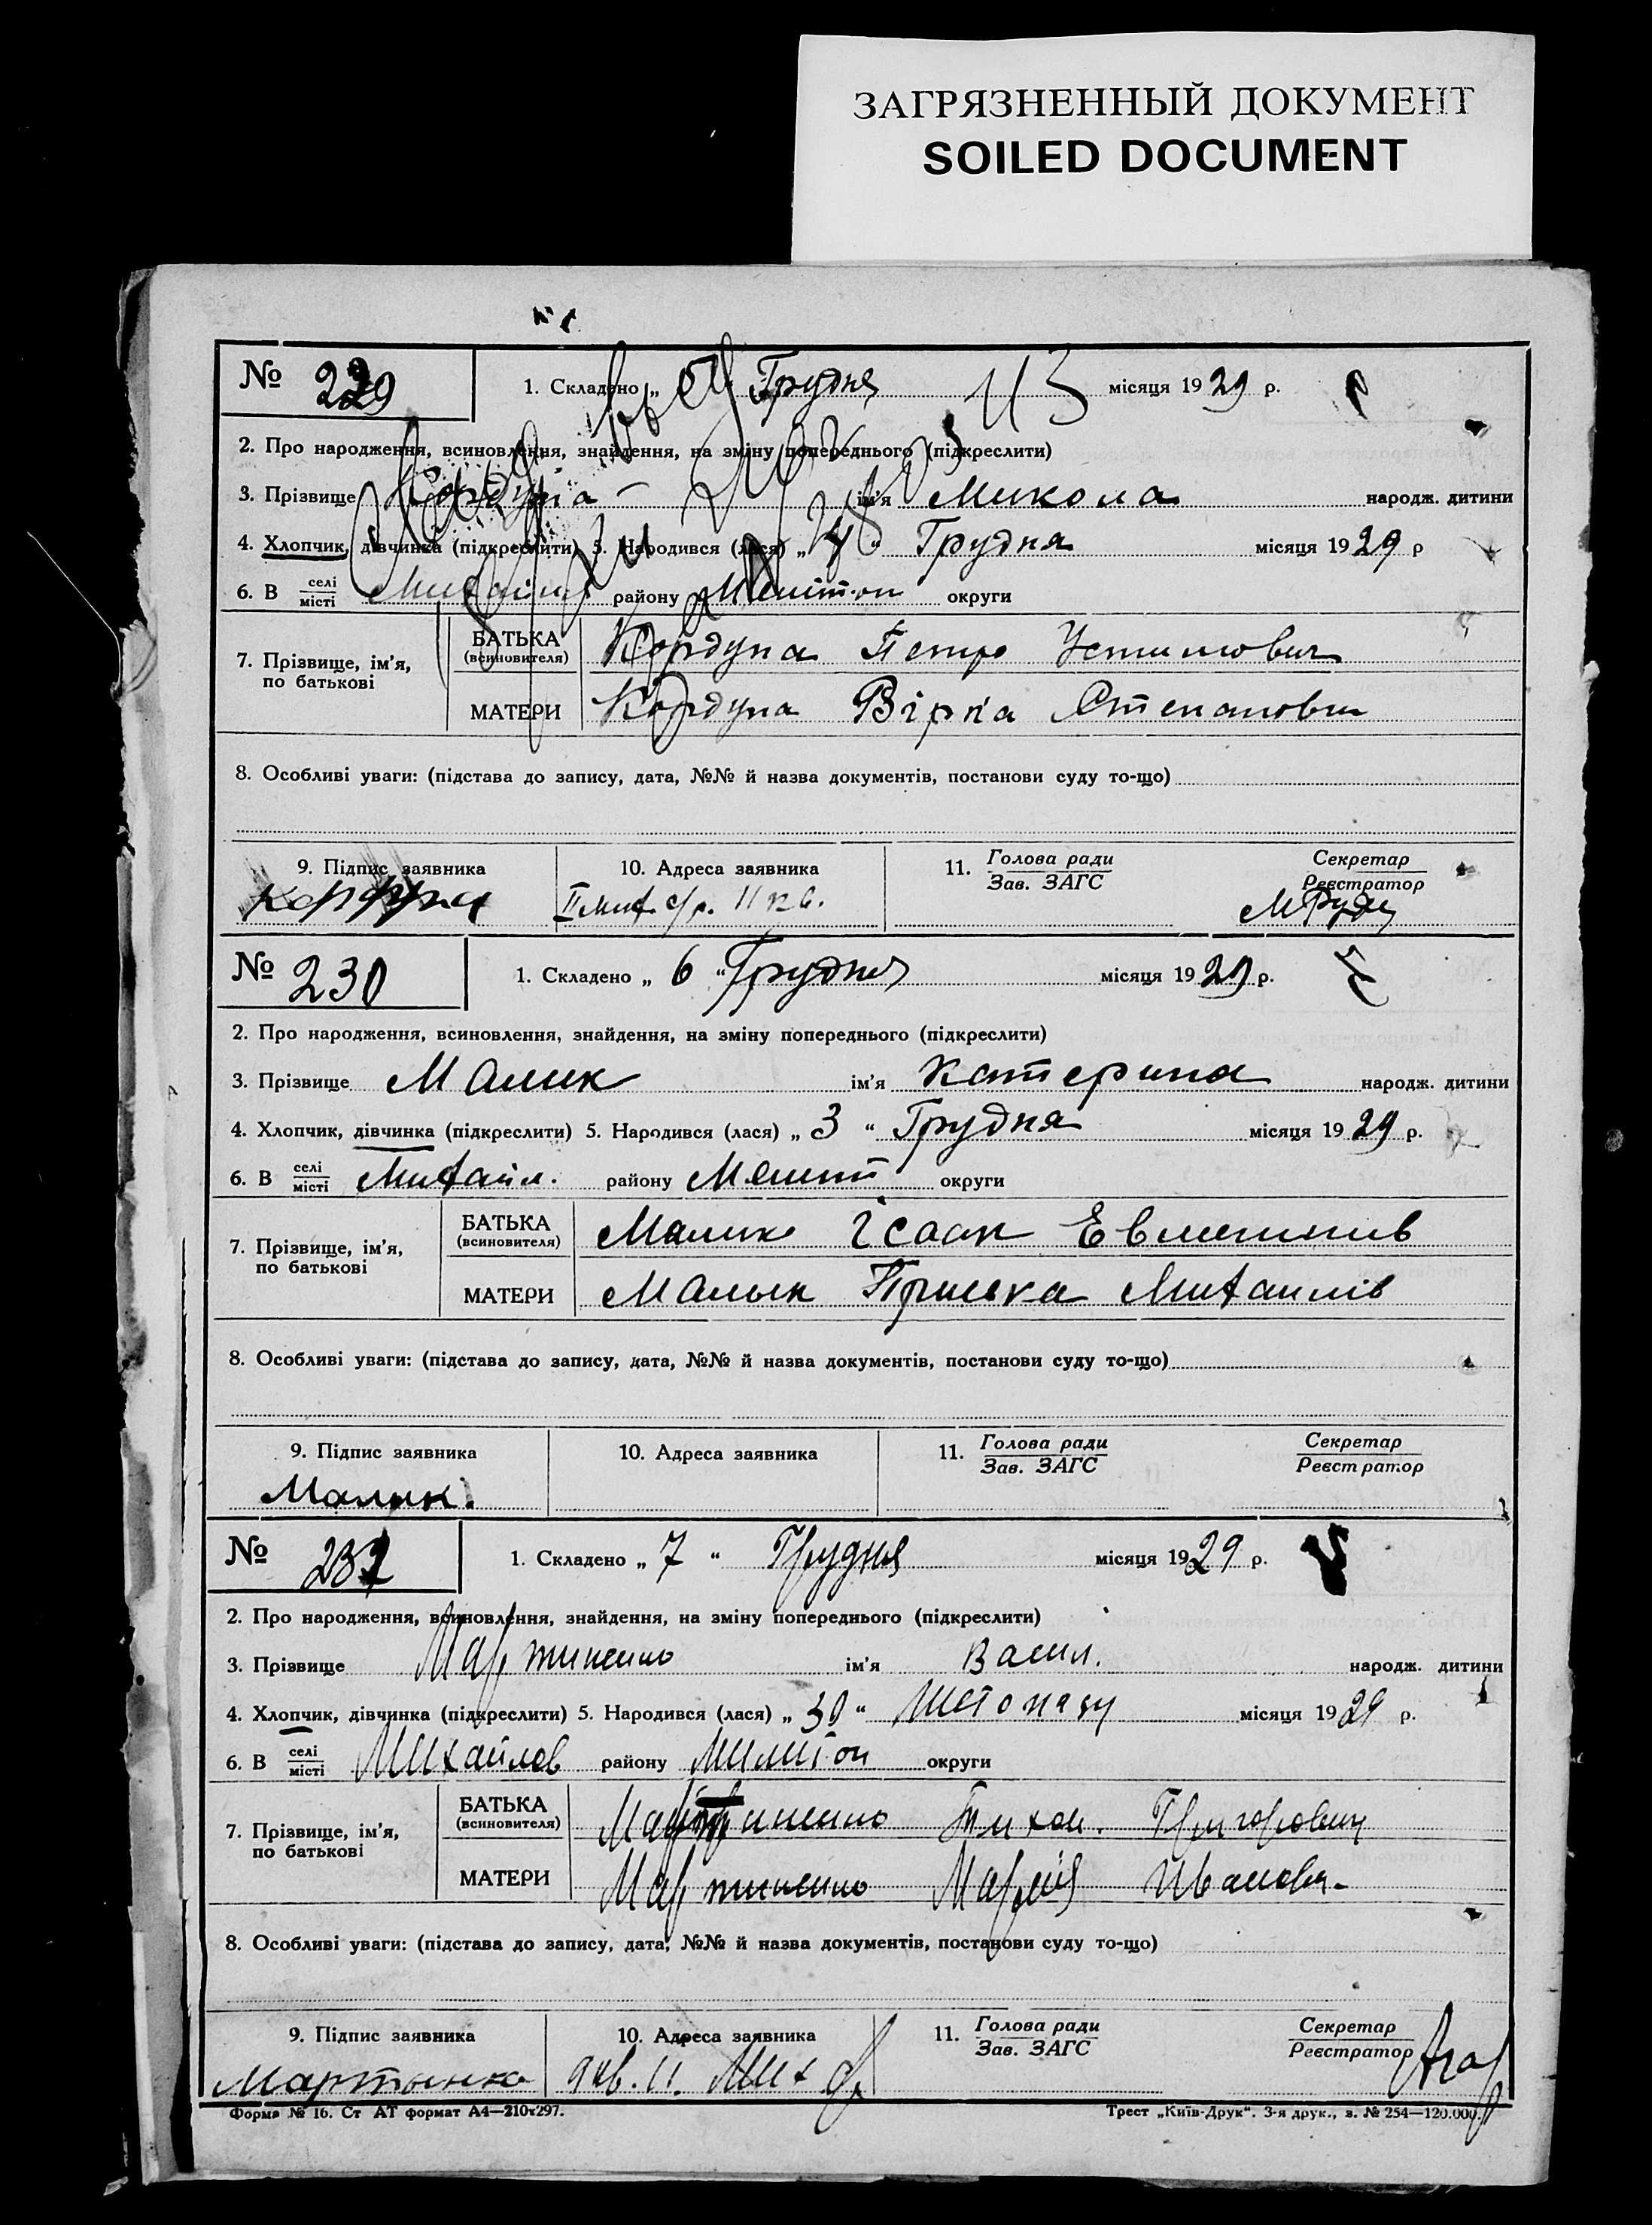 ЗАГРЯЗНЕННЫЙ ДОКУМЕНТ
SOILED DOCUMENT
№ 229 1. Складено „ Грудня місяця 1929 р.
2. Про народження, всиновлення, знайдення, на зміну попереднього (підкреслити)
3. Прізвище Кордупа ім'я Микола народж. дитини
4. Хлопчик, дівчинка (підкреслити) 5. Народився (лася) „ 4 “ Грудня місяця 1929 р
6. В селі/місті району округи
7. Прізвище, ім'я, по батькові
БАТЬКА (всиновителя) Кордупа Петро Устимович
МАТЕРИ Кордупа Вірка Степановн
8. Особливі уваги: (підстава до запису, дата, №№ й назва документів, постанови суду то-що)
9. Підпис заявника 10. Адреса заявника 11. Голова ради/Зав. ЗАГС Секретар/Реєстратор
№ 230 1. Складено „ 6 “ Грудня місяця 1929 р.
2. Про народження, всиновлення, знайдення, на зміну попереднього (підкреслити)
3. Прізвище Малик ім'я Катерина народж. дитини
4. Хлопчик, дівчинка (підкреслити) 5. Народився (лася) „ 3 “ Грудня місяця 1929 р.
6. В селі/місті Михайл. району Меліт округи
7. Прізвище, ім'я, по батькові
БАТЬКА (всиновителя) Малик Ісаак
МАТЕРИ Малик Пріська Михаилів
8. Особливі уваги: (підстава до запису, дата, №№ й назва документів, постанови суду то-що)
9. Підпис заявника 10. Адреса заявника 11. Голова ради/Зав. ЗАГС Секретар/Реєстратор
Малик.
№ 231 1. Складено „ 7 “ Грудня місяця 1929 р.
2. Про народження, всиновлення, знайдення, на зміну попереднього (підкреслити)
3. Прізвище Мартиненко ім'я Васил. народж. дитини
4. Хлопчик, дівчинка (підкреслити) 5. Народився (лася) „ 30 “ Листопаду місяця 1929 р.
6. В селі/місті Михайлов району Милитоп округи
7. Прізвище, ім'я, по батькові
БАТЬКА (всиновителя) Мартиненко Тихон. Григорович
МАТЕРИ Мартиненко Марія Ивановн
8. Особливі уваги: (підстава до запису, дата, №№ й назва документів, постанови суду то-що)
9. Підпис заявника 10. Адреса заявника 11. Голова ради/Зав. ЗАГС Секретар/Реєстратор
Форма № 16. Ст АТ формат А4—210×297. Трест „Київ-Друк“. 3-я друк., з. № 254—120.000.